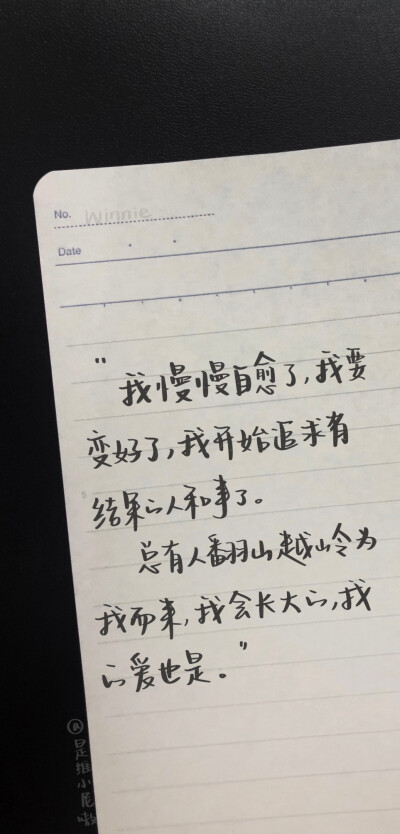 No. Winnie
Date
"我慢慢自愈了,我要
变好了,我开始追求有
结果的人和事了。
总有人翻山越岭为
我而来,我会长大的,我
的爱也是。"
@是维小尼呦